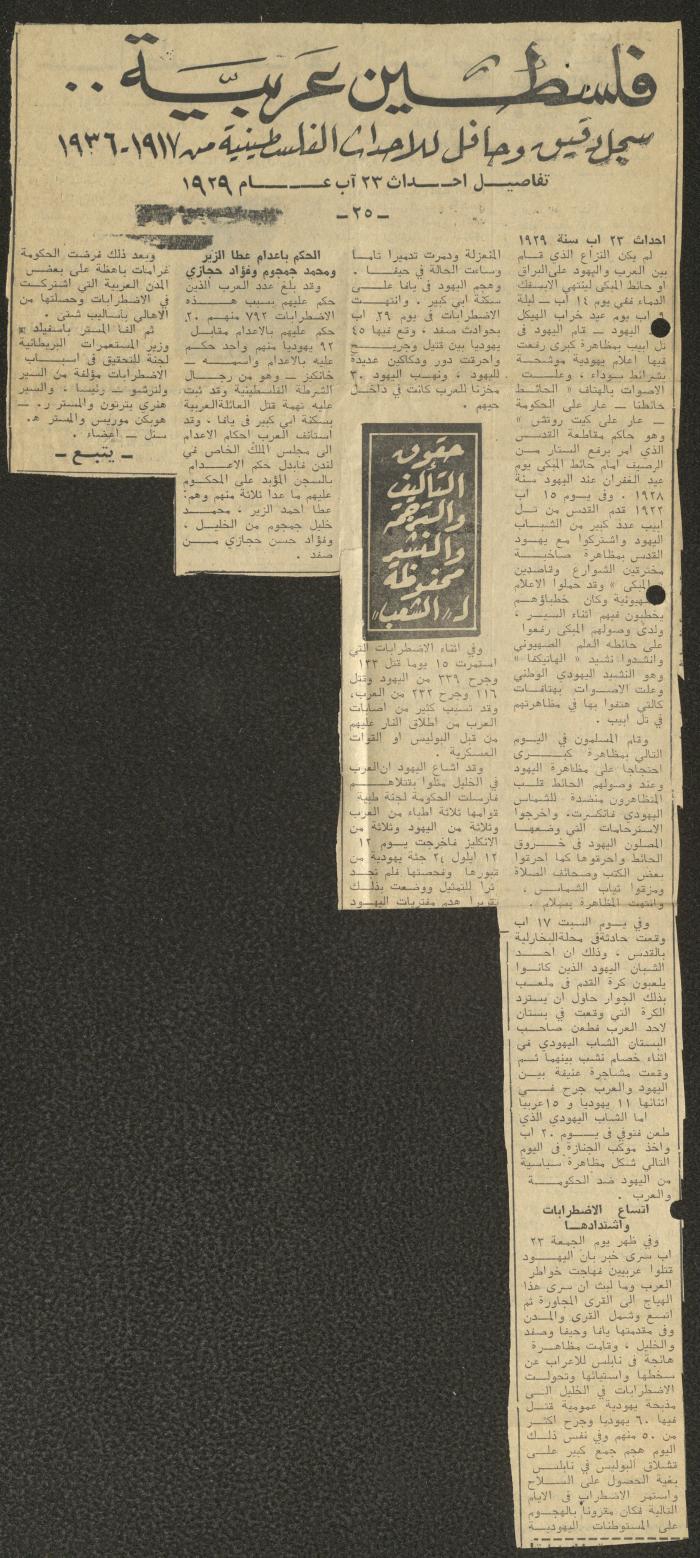 فلسطين عربية ..
سجل دقيق وحافل للاحداث الفلسطينية من ١٩١٧-١٩٣٦
تفاصيل احداث ٢٣ آب عام ١٩٢٩
ـ ٢٥ ـ
احداث ٢٣ اب سنة ١٩٢٩
لم يكن النزاع الذي قام
بين العرب واليهود على البراق
او حائط المبكى لينتهي الابسفك
الدماء ففي يوم ١٤ اب ـ ليلة
اب يوم عيد خراب الهيكل
اليهود ـ قام اليهود في
تل ابيب بمظاهرة كبرى رفعت
فيها اعلام يهودية موشحة
بشرائط سوداء ، وعلت
الاصوات بالهتاف « الحائط
حائطنا ـ عار على الحكومة
ـ عار على كيت روتش »
وهو حاكم مقاطعة القدس
الذي امر برفع الستار من
الرصيف امام حائط المبكى يوم
عيد الغفران عند اليهود سنة
١٩٢٨ . وفي يوم ١٥ اب
١٩٢٢ قدم القدس من تل
ابيب عدد كبير من الشباب
اليهود واشتركوا مع يهود
القدس بمظاهرة صاخبة
مخترقين الشوارع وقاصدين
المبكى » وقد حملوا الاعلام
وكان خطباؤهم
يخطبون فيهم اثناء السير ،
ولدى وصولهم المبكى رفعوا
على حائطه العلم الصهيوني
وانشدوا نشيد « الهاتيكفا »
وهو النشيد اليهودي الوطني
وعلت الاصوات بهتافات
كالتي هتفوا بها في مظاهرتهم
في تل ابيب .
وقام المسلمون في اليوم
التالي بمظاهرة كبرى
احتجاجا على مظاهرة اليهود
وعند وصولهم الحائط قلب
المتظاهرون منضدة للشماس
اليهودي فانكسرت. واخرجوا
الاسترحامات التي وضعها
المصلون اليهود في خروق
الحائط واحرقوها كما احرقوا
بعض الكتب وصحائف الصلاة
ومزقوا ثياب الشماس ،
وانتهت المظاهرة بسلام .
وفي يوم السبت ١٧ اب
وقعت حادثة في محلة البخارلية
بالقدس ، وذلك ان احد
الشبان اليهود الذين كانوا
يلعبون كرة القدم في ملعب
بذلك الجوار حاول ان يسترد
الكرة التي وقعت في بستان
لاحد العرب فطعن صاحب
البستان الشاب اليهودي في
اثناء خصام نشب بينهما ثم
وقعت مشاجرة عنيفة بين
اليهود والعرب جرح في
اثنائها ١١ يهوديا و ١٥ عربيا
اما الشاب اليهودي الذي
طعن فتوفي في يوم ٢٠ اب
واخذ موكب الجنازة في اليوم
التالي شكل مظاهرة سياسية
من اليهود ضد الحكومة
والعرب .
اتساع الاضطرابات
واشتدادها
وفي ظهر يوم الجمعة ٢٣
اب سرى خبر بان اليهود
قتلوا عربيين فهاجت خواطر
العرب وما لبث ان سرى هذا
الهياج الى القرى المجاورة ثم
اتسع وشمل القرى والمدن
وفي مقدمتها يافا وحيفا وصفد
والخليل ، وقامت مظاهرة
هائجة في نابلس للاعراب عن
سخطها واستيائها وتحولت
الاضطرابات في الخليل الى
مذبحة يهودية عمومية قتل
فيها ٦٠ يهوديا وجرح اكثر
من ٥٠ منهم وفي نفس ذلك
اليوم هجم جمع كبير على
قشلاق البوليس في نابلس
بغية الحصول على السلاح
واستمر الاضطراب في الايام
التالية فكان مقرونا بالهجوم
على المستوطنات اليهودية
المنعزلة ودمرت تدميرا تاما
وساءت الحالة في حيفا .
وهجم اليهود في يافا على
سكنة ابي كبير . وانتهت
الاضطرابات في يوم ٢٩ اب
بحوادث صفد ، وقع فيها ٤٥
يهوديا بين قتيل وجريح
واحرقت دور ودكاكين عديدة
لليهود ، ونهب اليهود ٣٠
مخزنا للعرب كانت في داخل
حيهم .
حقوق
التأليف
والترجمة
والنشر
محفوظة
لـ «الشعب»
وفي اثناء الاضطرابات التي
استمرت ١٥ يوما قتل ١٣٣
وجرح ٣٣٩ من اليهود وقتل
١١٦ وجرح ٢٣٢ من العرب،
وقد تسبب كثير من اصابات
العرب من اطلاق النار عليهم
من قبل البوليس او القوات
العسكرية .
وقد اشاع اليهود ان العرب
في الخليل مثلوا بقتلاهم
فارسلت الحكومة لجنة طبية
قوامها ثلاثة اطباء من العرب
وثلاثة من اليهود وثلاثة من
الانكليز فاخرجت يوم ١٢
١٢ ايلول ٢٤ جثة يهودية من
قبورها وفحصتها فلم تجد
ثرا للتمثيل ووضعت بذلك
تقريرا هدم مفتريات اليهود
الحكم باعدام عطا الزير
ومحمد جمجوم وفؤاد حجازي
وقد بلغ عدد العرب الذين
حكم عليهم بسبب هذه
الاضطرابات ٧٩٢ منهم ٢٠
حكم عليهم بالاعدام مقابل
٩٢ يهوديا منهم واحد حكم
عليه بالاعدام واسمه ـ
خانكيز ـ وهو من رجال
الشرطة الفلسطينية وقد ثبت
عليه تهمة قتل العائلة العربية
بسكنة ابي كبير في يافا . وقد
استأنف العرب احكام الاعدام
الى مجلس الملك الخاص في
لندن فابدل حكم الاعدام
بالسجن المؤبد على المحكوم
عليهم ما عدا ثلاثة منهم وهم:
عطا احمد الزير ، محمد
خليل جمجوم من الخليل ،
وفؤاد حسن حجازي من
صفد .
وبعد ذلك فرضت الحكومة
غرامات باهظة على بعض
المدن العربية التي اشتركت
في الاضطرابات وحصلتها من
الاهالي باساليب شتى .
ثم الفا المستر باسفيلد
وزير المستعمرات البريطانية
لجنة للتحقيق في اسباب
الاضطرابات مؤلفة من السير
ولترشو ـ رئيسا ، والسير
هنري بترتون والمستر ر. ـ
هوبكن موريس والمستر هـ.
سنل ـ اعضاء .
ـ يتبع ـ